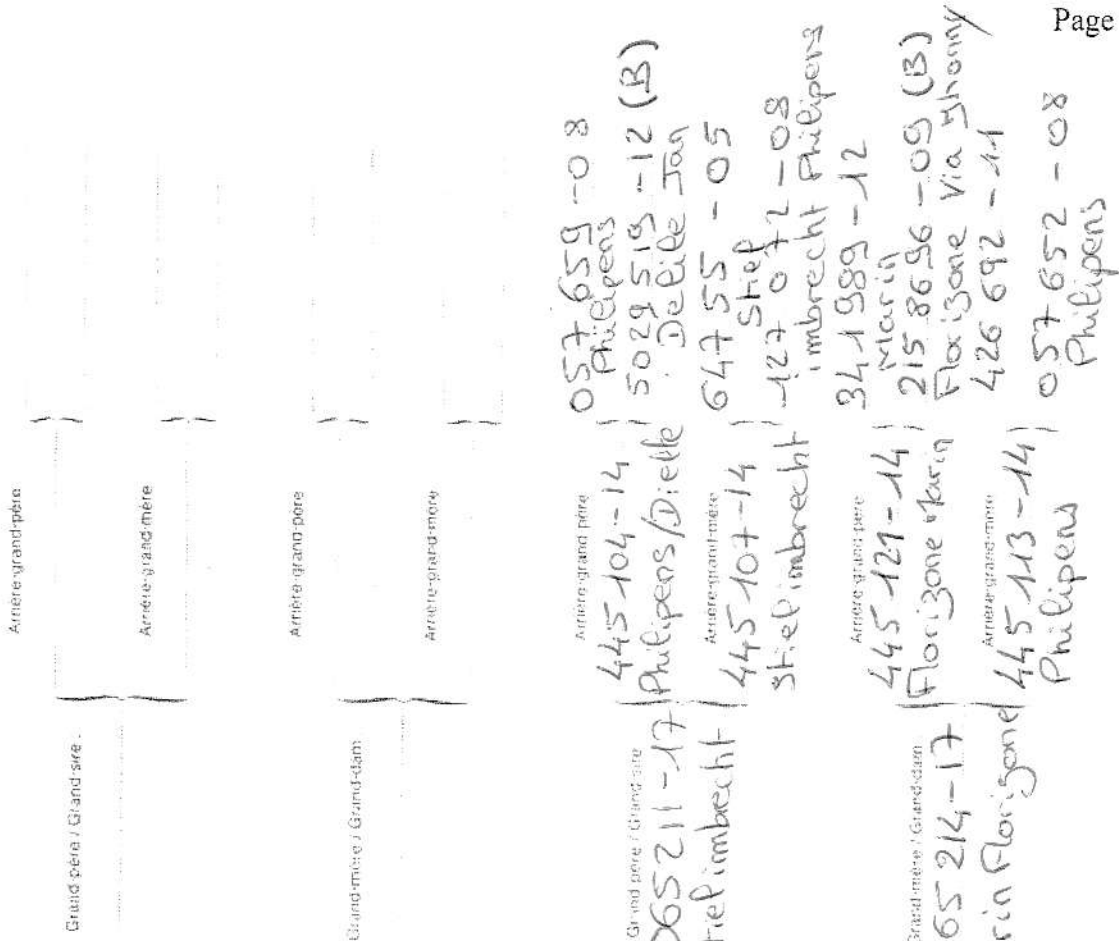 Page
Grand-père / Grand-sire
Arrière-grand-père
Arrière-grand-mère
Grand-mère / Grand-dam
Arrière-grand-père
Arrière-grand-mère
Grand-père / Grand-sire
065211-17
imbrecht
Arrière-grand-père
445104-14
Philipens/Dielle
057659-08
Philipens
5029519-12 (B)
Delile Jan
Arrière-grand-mère
445107-14
Stiel imbrecht
64755-05
Stiel
127072-08
imbrecht Philipens
Grand-mère / Grand-dam
65214-17
Florizone
Arrière-grand-père
445121-14
Florizone Marin
341989-12
Marin
2158696-09 (B)
Florizone Via Jhonny
Arrière-grand-mère
445113-14
Philipens
426692-11
057652-08
Philipens